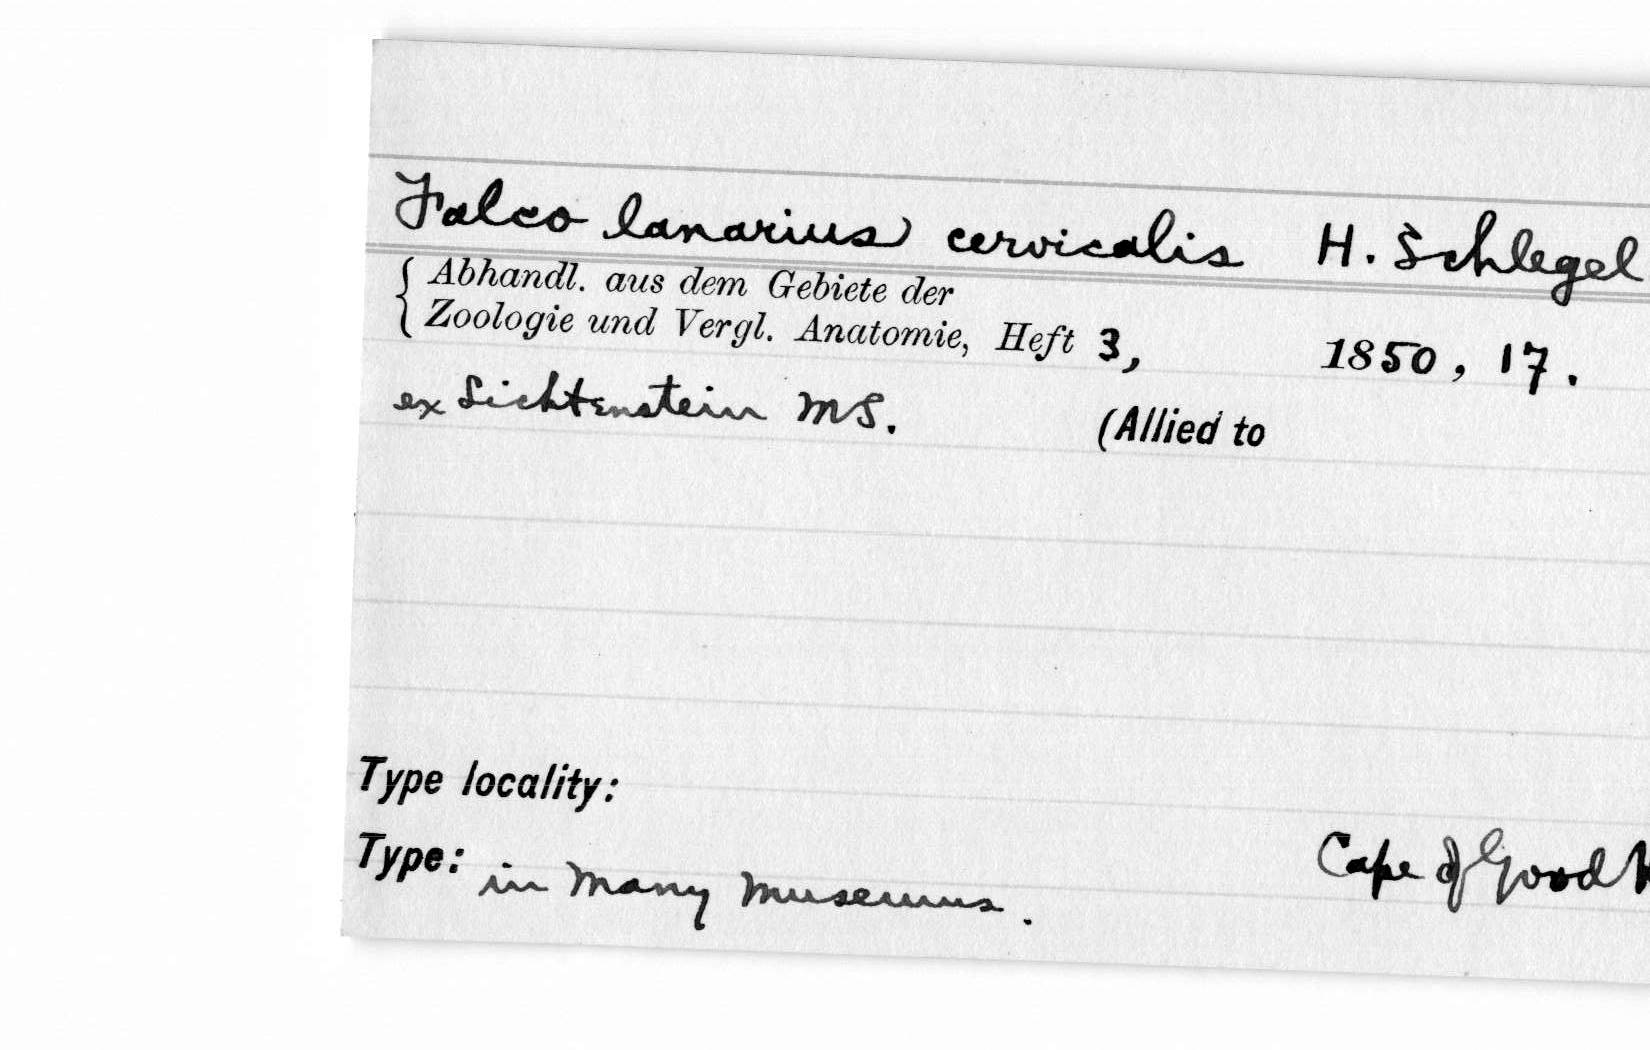 Falco lanarius cervicalis H. Schlegel
Abhandl. aus dem Gebiete der
Zoologie und Vergl. Anatomie, Heft 3, 1850, 17.
ex Lichtenstein MS. (Allied to
Type locality:
Cape of Good
Type: in many museums.